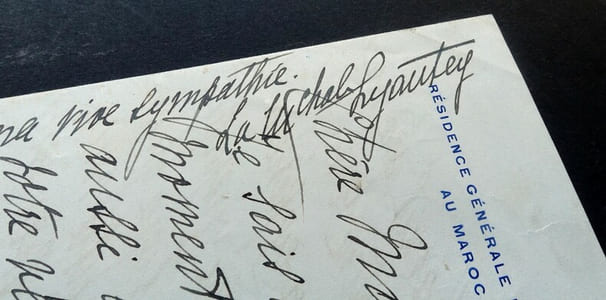 ma vive sympathie.
La Mchale Lyautey
RÉSIDENCE GÉNÉRALE
AU MAROC
Chère
Je sais
moment
aussi
votre